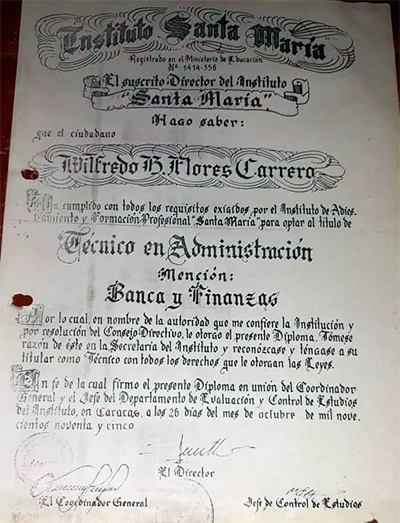 Instituto Santa María
Registrado en el Ministerio de Educación
Nº 1414-556
El suscrito: Director del Instituto
"Santa María"
Hago saber:
que el ciudadano
Wilfredo H. Flores Carrero
Ha cumplido con todos los requisitos exigidos por el Instituto de Adies-
tramiento y Formación Profesional "Santa María" para optar al título de
Técnico en Administración
Mención:
Banca y Finanzas
Por lo cual, en nombre de la autoridad que me confiere la Institución y
por resolución del Consejo Directivo, le otorgo el presente Diploma. Tómese
razón de éste en la Secretaría del Instituto y reconózcase y téngase a su
titular como Técnico con todos los derechos que le otorgan las Leyes.
En fe de la cual firmo el presente Diploma en unión del Coordinador
General y el Jefe del Departamento de Evaluación y Control de Estudios
del Instituto, en Caracas, a los 26 días del mes de octubre de mil nove-
cientos noventa y cinco
El Director
El Coordinador General
Jefe de Control de Estudios